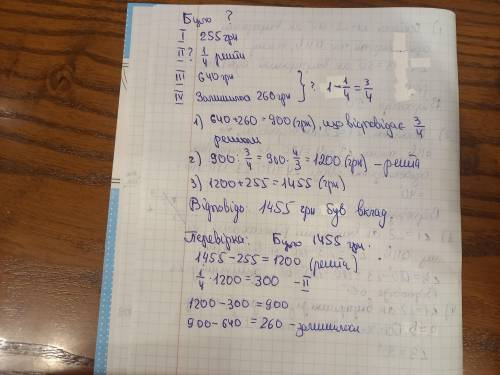 Було ?
I 255 грн
II ? 1/4 решти
III 640 грн
IV Залишилось 260 грн } ? 1 - 1/4 = 3/4
1) 640+260=900 (грн), що відповідає 3/4
решти
2) 900 : 3/4 = 900 · 4/3 = 1200 (грн) – решта
3) 1200+255=1455 (грн)
Відповідь 1455 грн був вклад.
Перевірка: Було 1455 грн.
1455-255=1200 (решта)
1/4 · 1200 = 300 – II
1200-300=900
900-640=260 - залишилось